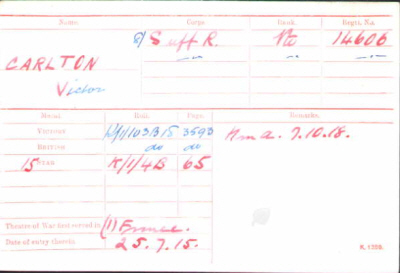 Name. Corps. Rank. Regtl. No.
Suff R. Pte 14606
CARLTON
Victor
Medal. Roll. Page. Remarks.
VICTORY 103B15 3593 7.10.18.
BRITISH do do
15 STAR K/1/4B 65
Theatre of War first served in (1) France.
Date of entry therein 25.7.15.
K. 1380.